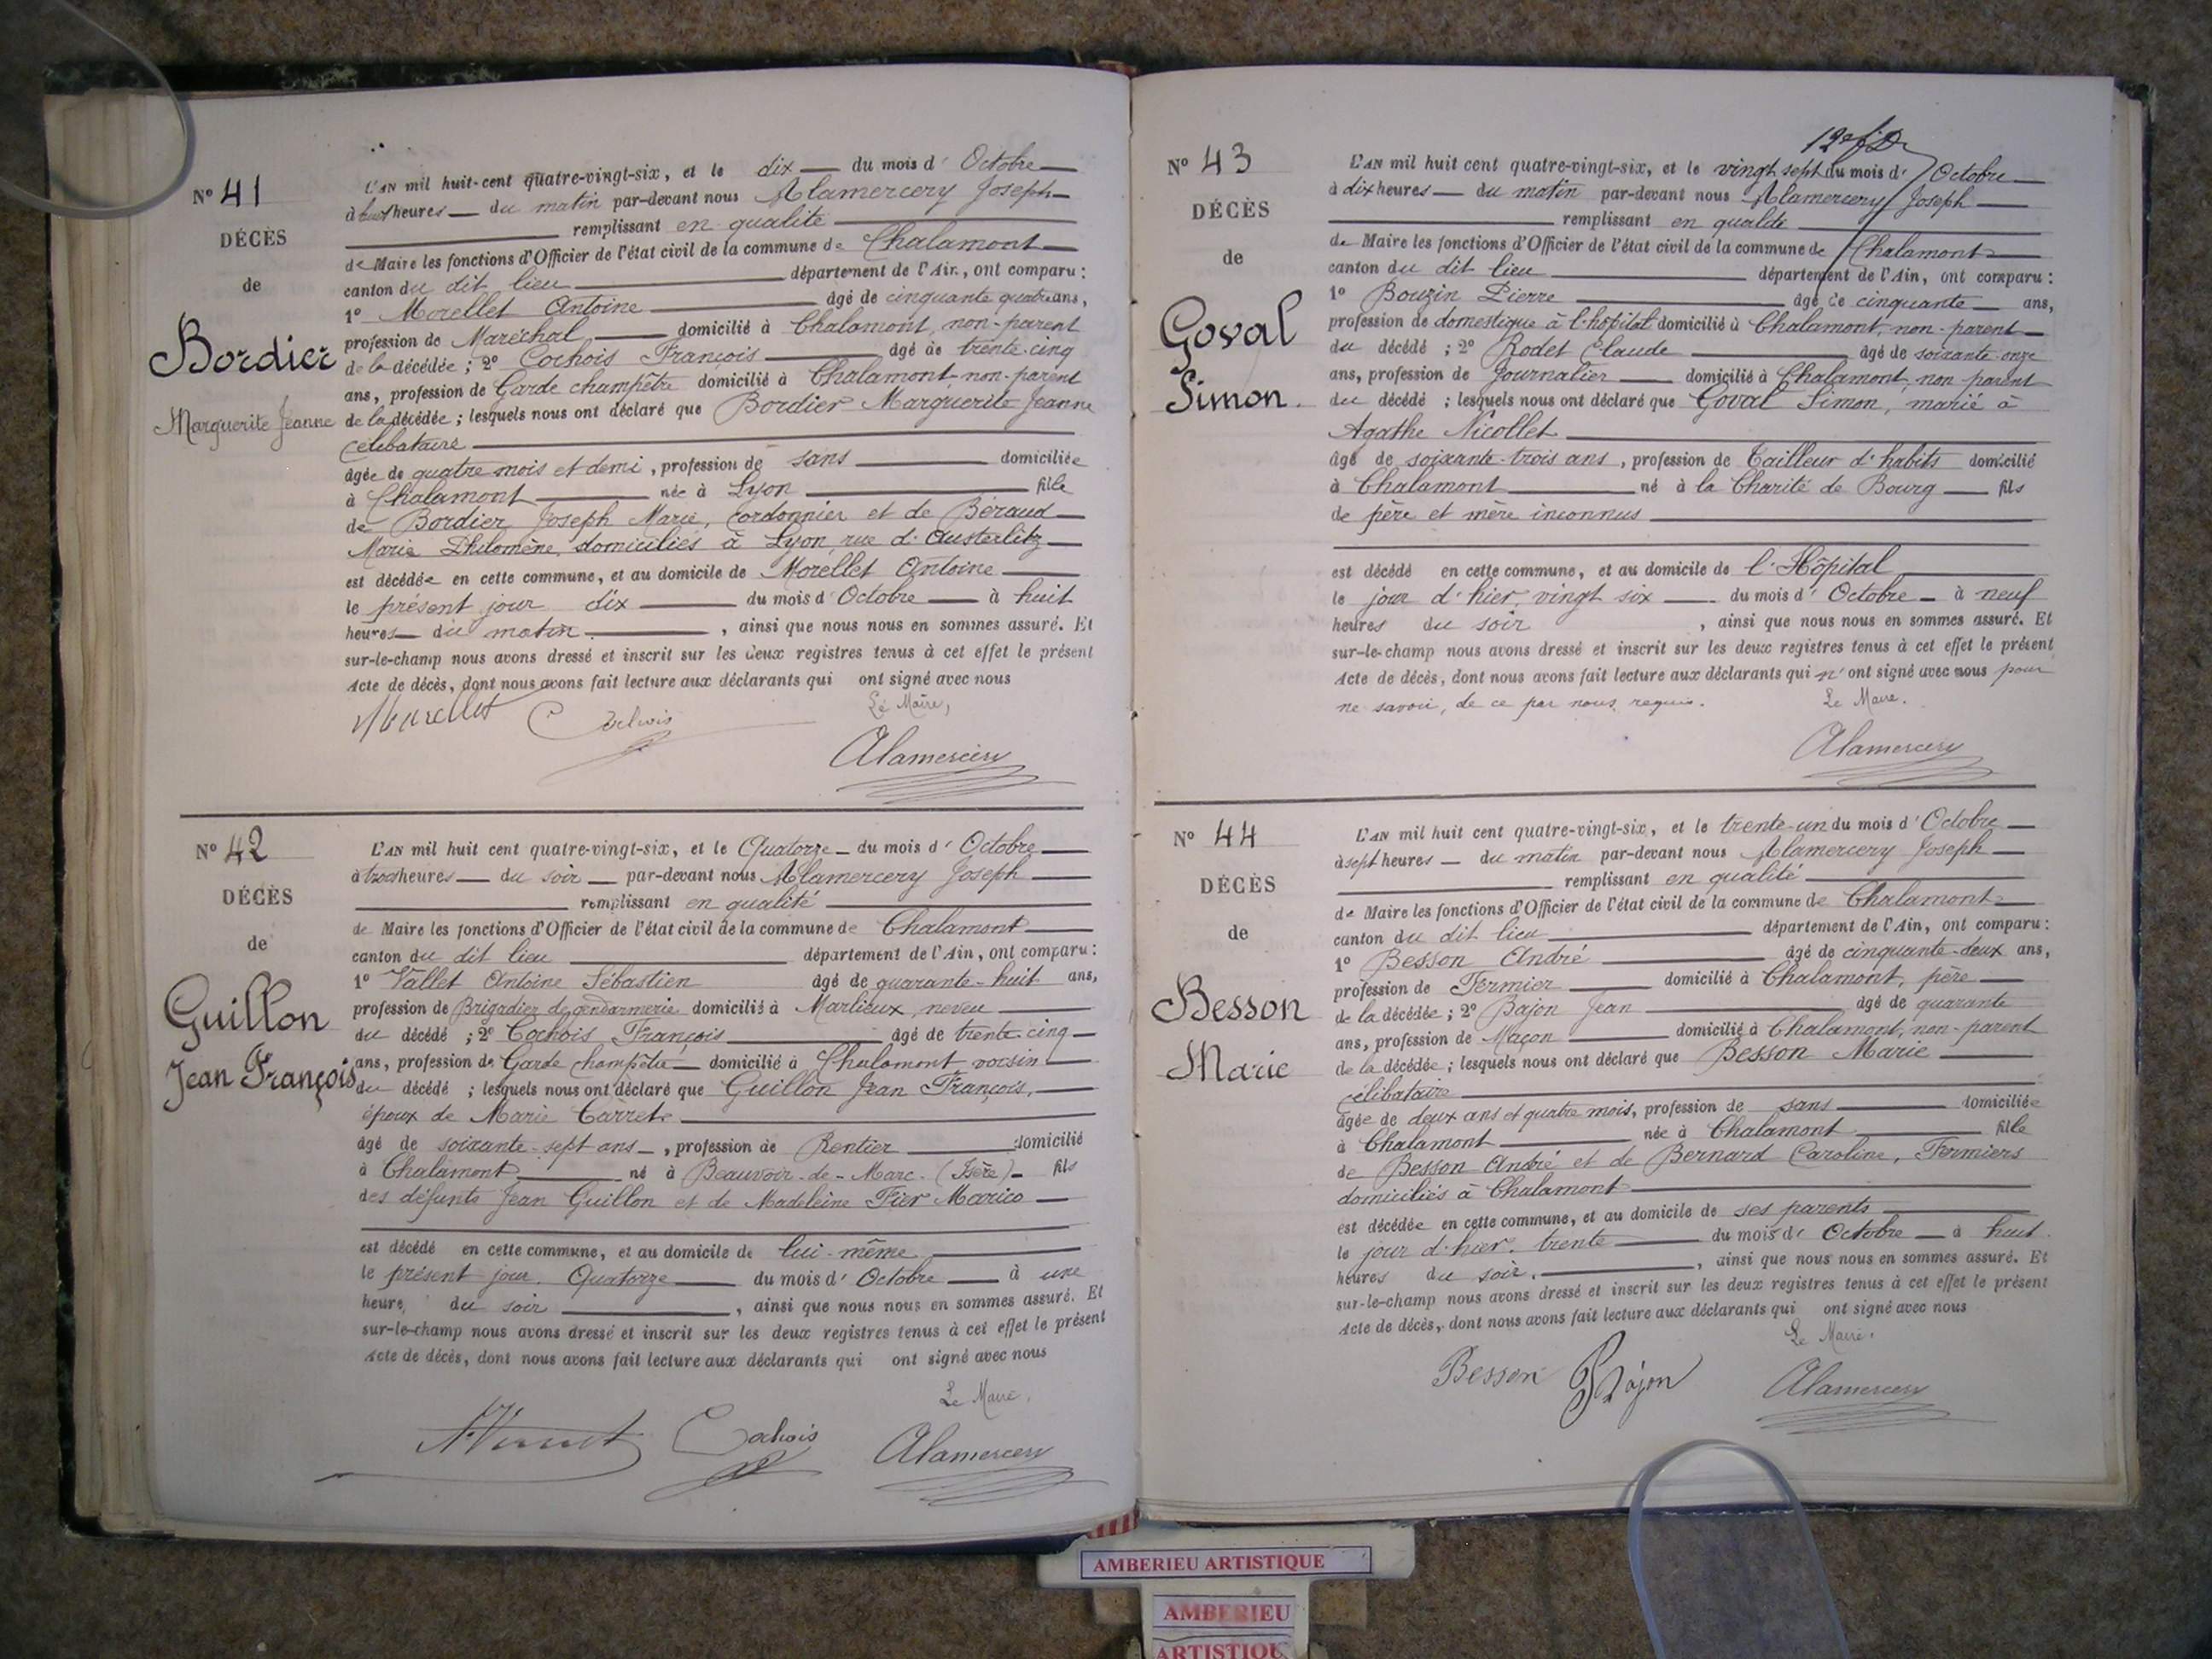 N° 41
DÉCÈS
de
Bordier
Marguerite Jeanne
L'AN mil huit-cent quatre-vingt-six, et le dix du mois d' Octobre
à heures du matin par-devant nous Alamercery Joseph
remplissant en qualité
de Maire les fonctions d'Officier de l'état civil de la commune de Chalamont
canton du dit lieu département de l'Ain, ont comparu :
1° Morellet Antoine âgé de cinquante quatre ans,
profession de Maréchal domicilié à Chalamont, non-parent
de la décédée ; 2° Cochois François âgé de trente-cinq
ans, profession de Garde champêtre domicilié à Chalamont non-parent
de la décédée ; lesquels nous ont déclaré que Bordier Marguerite Jeanne
célibataire
âgée de quatre mois et demi, profession de sans domiciliée
à Chalamont née à Lyon fille
de Bordier Joseph Marie, cordonnier et de Béraud
Marie Philomène, domiciliés à Lyon, rue d'Austerlitz
est décédée en cette commune, et au domicile de Morellet Antoine
le présent jour dix du mois d' Octobre à huit
heures du matin, ainsi que nous nous en sommes assuré. Et
sur-le-champ nous avons dressé et inscrit sur les deux registres tenus à cet effet le présent
acte de décès, dont nous avons fait lecture aux déclarants qui ont signé avec nous
Le Maire,
Morellet Cochois
Alamercery
N° 42
DÉCÈS
de
Guillon
Jean François
L'AN mil huit cent quatre-vingt-six, et le Quatorze du mois d' Octobre
à trois heures du soir par-devant nous Alamercery Joseph
remplissant en qualité
de Maire les fonctions d'Officier de l'état civil de la commune de Chalamont
canton du dit lieu département de l'Ain, ont comparu :
1° Vallet Antoine Sébastien âgé de quarante-huit ans,
profession de Brigadier de gendarmerie domicilié à Marlieux, neveu
du décédé ; 2° Cochois François âgé de trente-cinq
ans, profession de Garde champêtre domicilié à Chalamont voisin
du décédé ; lesquels nous ont déclaré que Guillon Jean François,
époux de Marie Carret
âgé de soixante-sept ans, profession de Rentier domicilié
à Chalamont né à Beauvoir-de-Marc (Isère) fils
des défunts Jean Guillon et de Madeleine
est décédé en cette commune, et au domicile de lui-même
le présent jour, Quatorze du mois d' Octobre à une
heure du soir, ainsi que nous nous en sommes assuré. Et
sur-le-champ nous avons dressé et inscrit sur les deux registres tenus à cet effet le présent
acte de décès, dont nous avons fait lecture aux déclarants qui ont signé avec nous
Le Maire,
Cochois Alamercery
N° 43
DÉCÈS
de
Goval
Simon
L'AN mil huit cent quatre-vingt-six, et le vingt sept du mois d' Octobre
à dix heures du matin par-devant nous Alamercery Joseph
remplissant en qualité
de Maire les fonctions d'Officier de l'état civil de la commune de Chalamont
canton du dit lieu département de l'Ain, ont comparu :
1° Bouzin Pierre âgé de cinquante ans,
profession de domestique à l'hôpital domicilié à Chalamont, non-parent
du décédé ; 2° Rodet Claude âgé de soixante-onze
ans, profession de Journalier domicilié à Chalamont, non parent
du décédé ; lesquels nous ont déclaré que Goval Simon, marié à
Agathe Nicollet
âgé de soixante-trois ans, profession de Tailleur d'habits domicilié
à Chalamont né à la Charité de Bourg fils
de père et mère inconnus
est décédé en cette commune, et au domicile de l'Hôpital
le jour d'hier, vingt six du mois d' Octobre à neuf
heures du soir, ainsi que nous nous en sommes assuré. Et
sur-le-champ nous avons dressé et inscrit sur les deux registres tenus à cet effet le présent
acte de décès, dont nous avons fait lecture aux déclarants qui n'ont signé avec nous pour
ne savoir, de ce par nous requis.
Le Maire.
Alamercery
N° 44
DÉCÈS
de
Besson
Marie
L'AN mil huit cent quatre-vingt-six, et le trente-un du mois d' Octobre
à sept heures du matin par-devant nous Alamercery Joseph
remplissant en qualité
de Maire les fonctions d'Officier de l'état civil de la commune de Chalamont
canton du dit lieu département de l'Ain, ont comparu :
1° Besson André âgé de cinquante-deux ans,
profession de Fermier domicilié à Chalamont, père
de la décédée ; 2° Bajon Jean âgé de quarante
ans, profession de Maçon domicilié à Chalamont, non-parent
de la décédée ; lesquels nous ont déclaré que Besson Marie
célibataire
âgée de deux ans et quatre mois, profession de sans domiciliée
à Chalamont née à Chalamont fille
de Besson André et de Bernard Caroline, Fermiers
domiciliés à Chalamont
est décédée en cette commune, et au domicile de ses parents
le jour d'hier, trente du mois d' Octobre à huit
heures du soir, ainsi que nous nous en sommes assuré. Et
sur-le-champ nous avons dressé et inscrit sur les deux registres tenus à cet effet le présent
acte de décès, dont nous avons fait lecture aux déclarants qui ont signé avec nous
Le Maire.
Besson Bajon Alamercery
AMBERIEU ARTISTIQUE
AMBERIEU
ARTISTIQUE